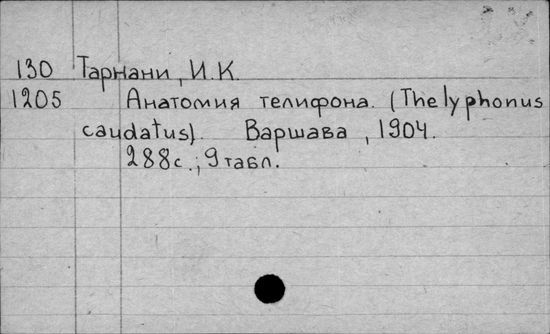 130 Тарнани, И.К.
1205 Анатомия телифона. (Thelyphonus
caudatus). Варшава, 1904.
288с.; 9табл.